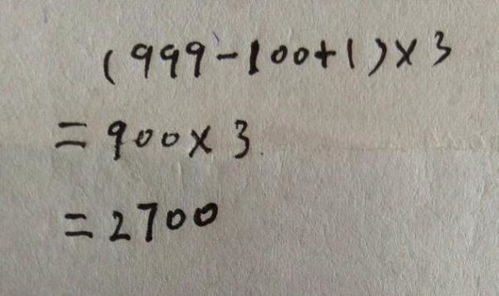 (999-100+1)×3
=900×3
=2700